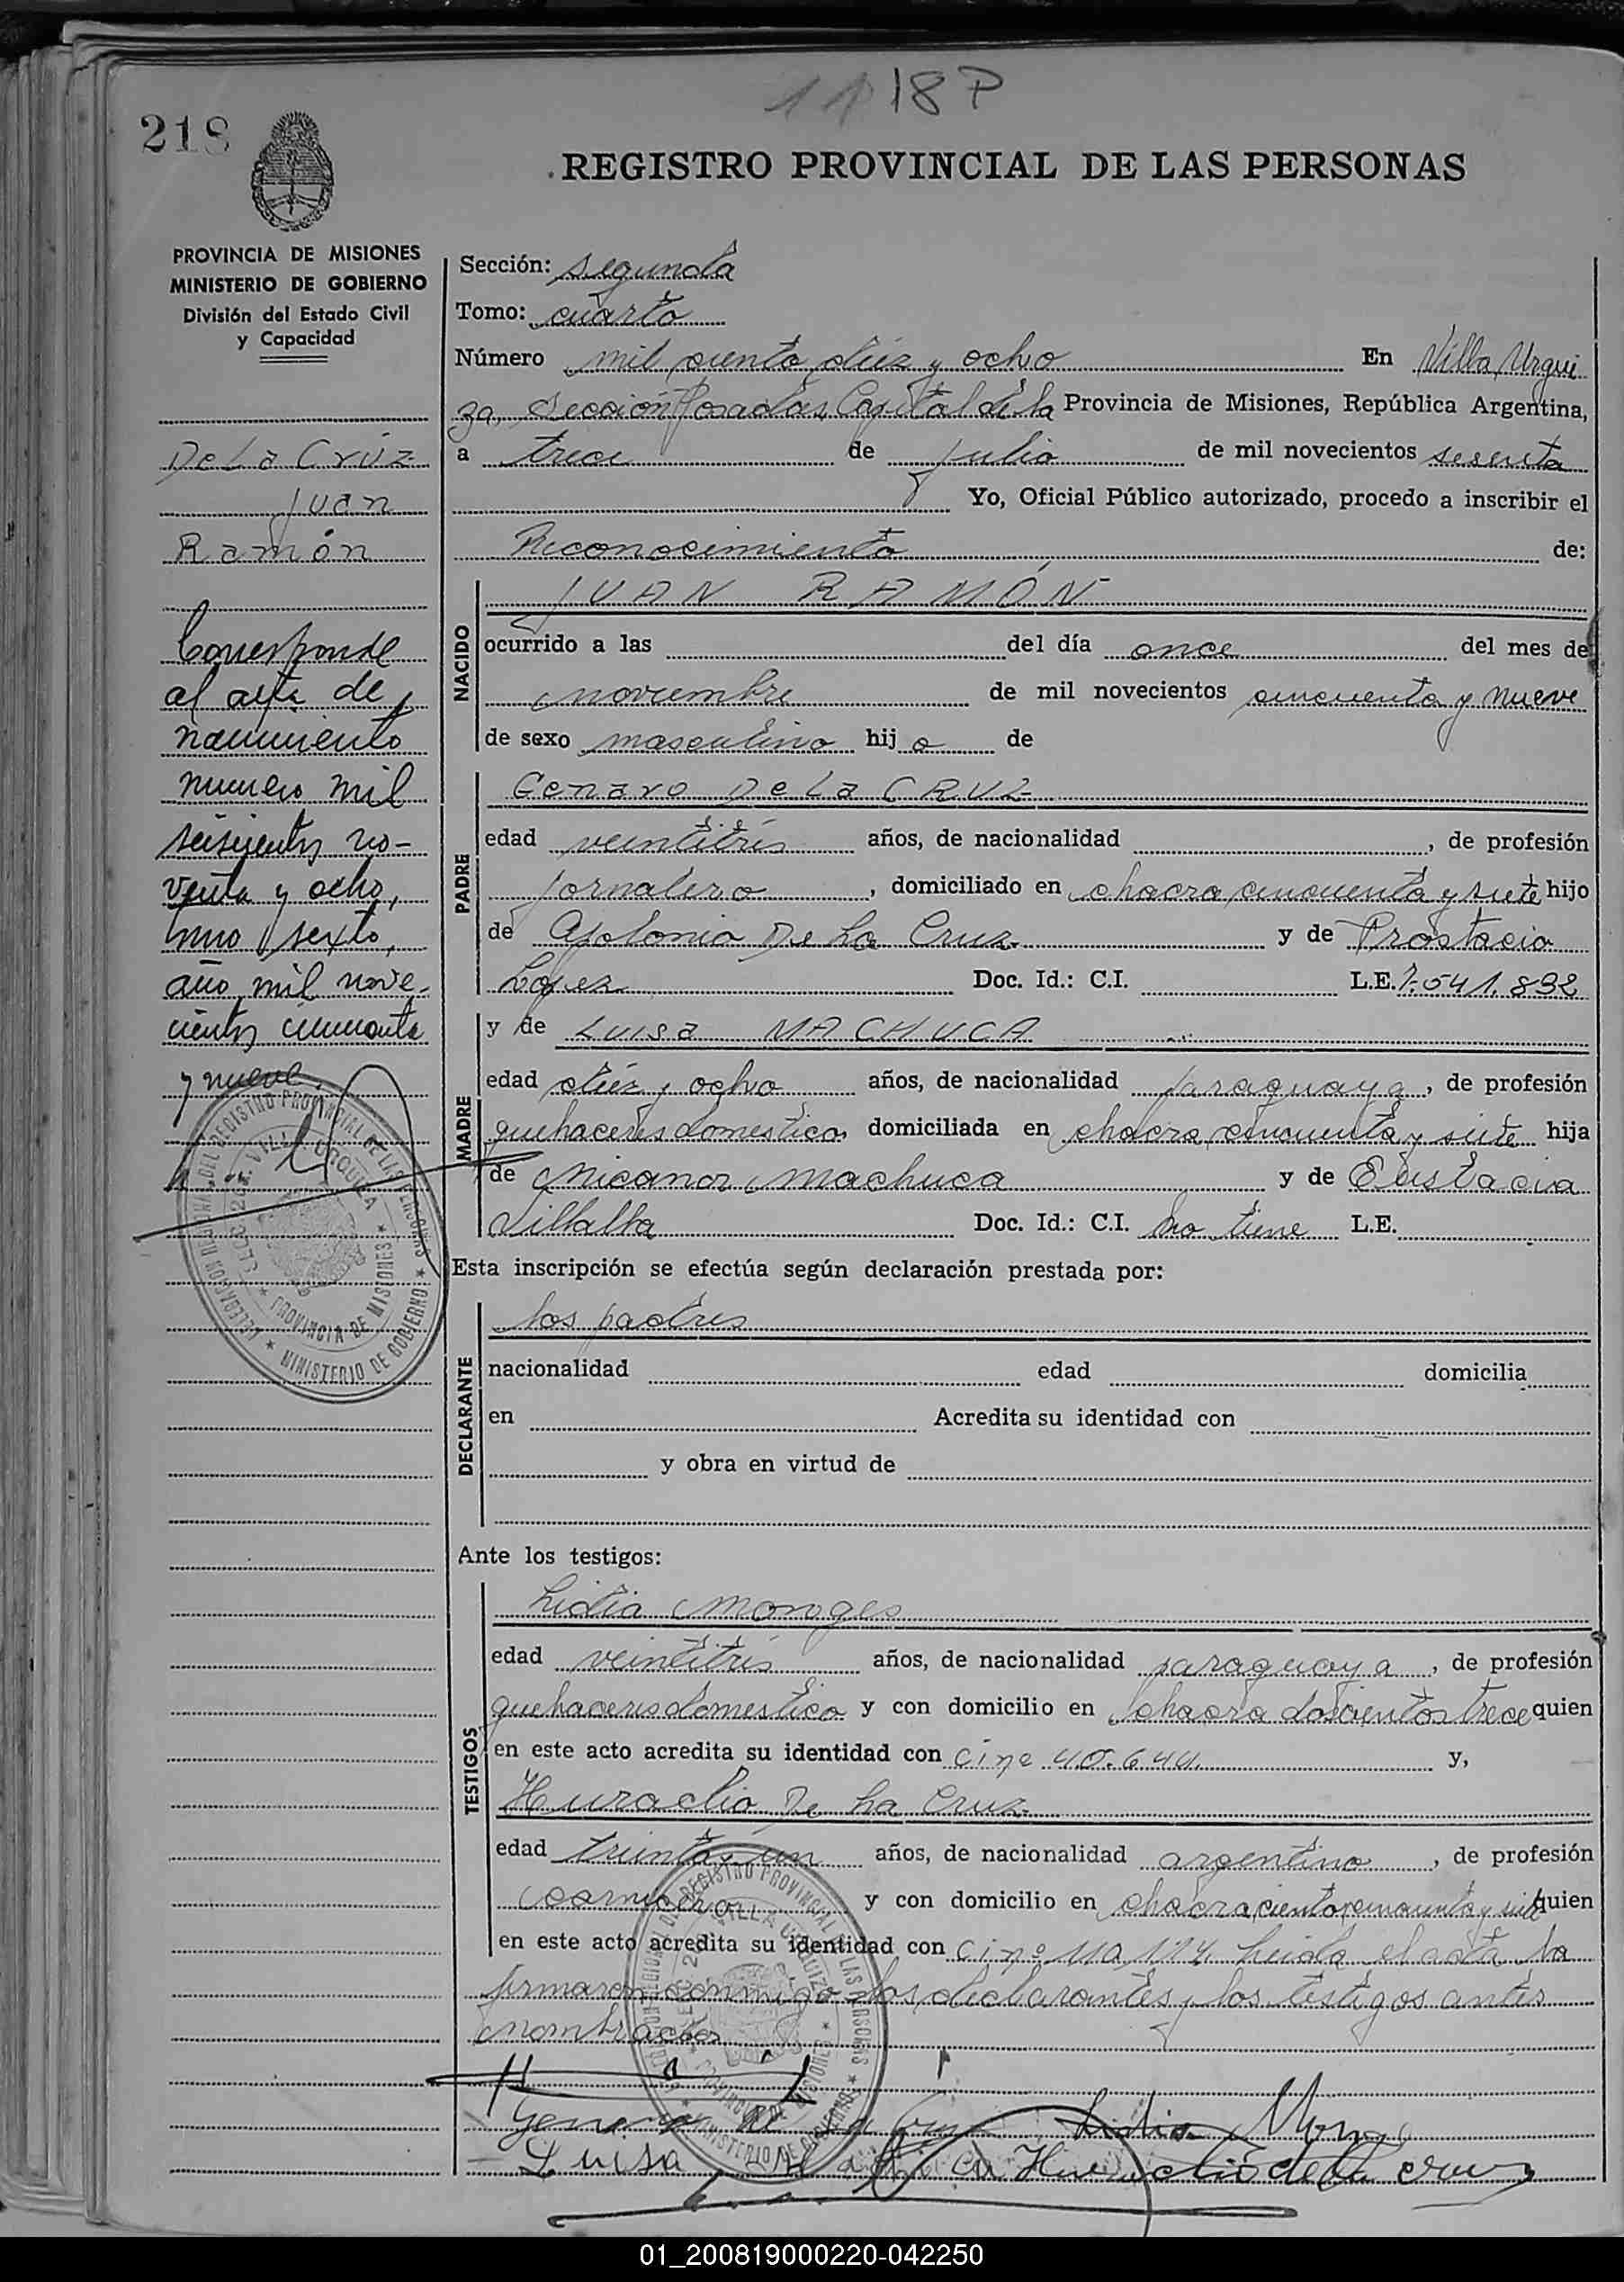 1118 P
218
REGISTRO PROVINCIAL DE LAS PERSONAS
PROVINCIA DE MISIONES
MINISTERIO DE GOBIERNO
División del Estado Civil
y Capacidad
De La Cruz
Juan
Ramón
Corresponde
al acta de
nacimiento
numero mil
seiscientos no-
venta y ocho,
tomo sexto,
año mil nove-
cientos cincuenta
y nueve.
Sección: segunda
Tomo: cuarto
Número mil ciento diez y ocho En Villa Urqui
za, Sección Posadas Capital de la Provincia de Misiones, República Argentina,
a trece de julio de mil novecientos sesenta
Yo, Oficial Público autorizado, procedo a inscribir el
Reconocimiento de:
NACIDO
JUAN RAMÓN
ocurrido a las del día once del mes de
noviembre de mil novecientos cincuenta y nueve
de sexo masculino hij o de
PADRE
Genaro De La CRUZ
edad veintitrés años, de nacionalidad , de profesión
jornalero , domiciliado en chacra cincuenta y siete hijo
de Apolonio De La Cruz y de Prostacia
Lopez Doc. Id.: C.I. L.E. 7.541.832
MADRE
y de Luisa MACHUCA
edad diez y ocho años, de nacionalidad paraguaya , de profesión
quehaceres domestico, domiciliada en chacra cincuenta y siete hija
de Nicanor Machuca y de Eustacia
Villalba Doc. Id.: C.I. No tiene L.E.
Esta inscripción se efectúa según declaración prestada por:
DECLARANTE
los padres
nacionalidad edad domicilia
en Acredita su identidad con
y obra en virtud de
Ante los testigos:
TESTIGOS
Lidia Monges
edad veintitrés años, de nacionalidad paraguaya , de profesión
quehaceres domestico y con domicilio en chacra doscientos trece quien
en este acto acredita su identidad con ci nº 40.644. y,
Huraclio De La Cruz
edad treinta y un años, de nacionalidad argentino , de profesión
carnicero y con domicilio en chacra ciento cincuenta y siete quien
en este acto acredita su identidad con ci nº 110.174. Leida el acta la
firmaron conmigo los declarantes y los testigos antes
nombrados
Genaro De la Cruz Lidia Monges
Luisa Huraclio de la cruz
DELEGACION REGIONAL DEL REGISTRO PROVINCIAL DE LAS PERSONAS
SECC. 2da. VILLA URQUIZA
PROVINCIA DE MISIONES
MINISTERIO DE GOBIERNO
01_200819000220-042250